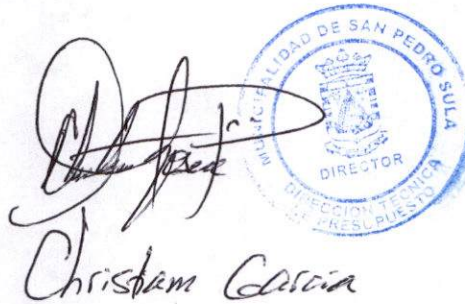 MUNICIPALIDAD DE SAN PEDRO SULA
DIRECTOR
DIRECCION TECNICA
DE PRESUPUESTO
Christiam Garcia